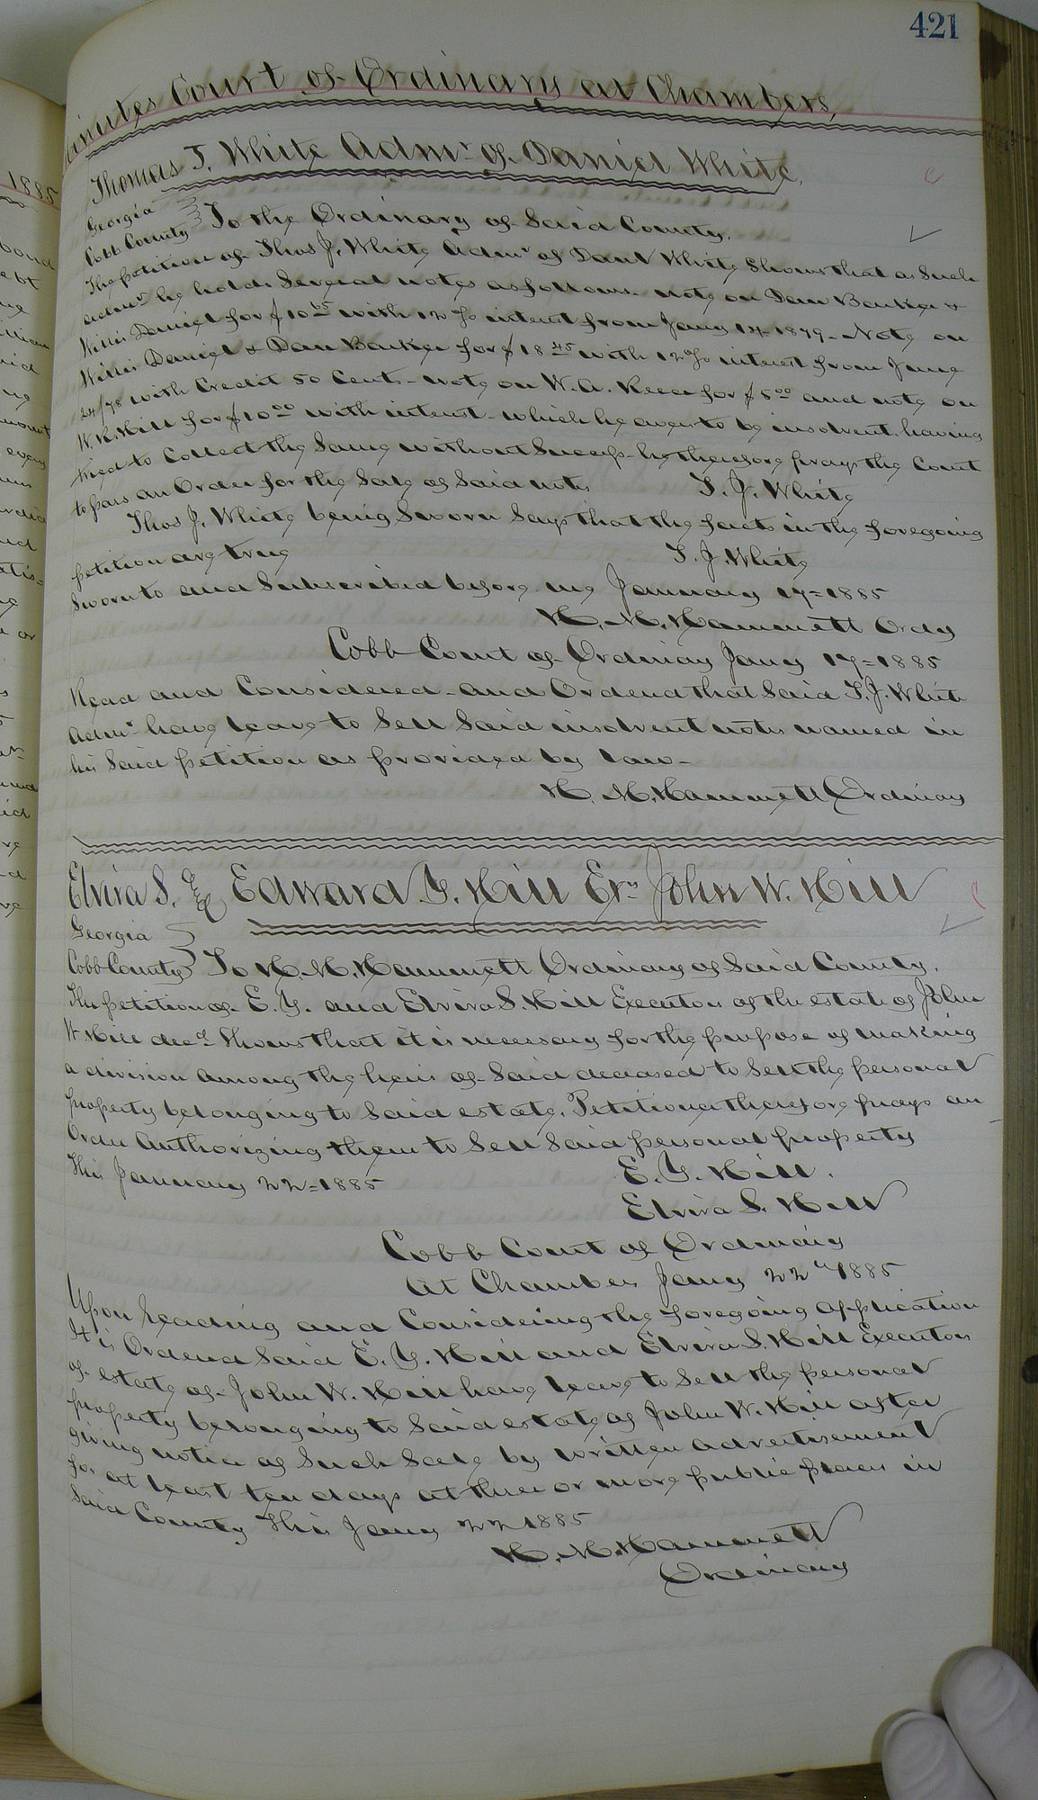 421
Minutes Court of Ordinary at Chambers,
Thomas J. White Admr of Daniel White.
Georgia
Cobb County To the Ordinary of Said County.
The petition of Thos J. White Admr of Danl White Shows that as Such
admr he holds Several notes as follows. note on Dan Barker &
Willis Daniel for $10.65 with 12 % interest from Jany 14 1879 - Note on
Willis Daniel & Dan Barker for $18.45 with 12 % interest from June
24/78 with Credit 50 Cents - note on W. A. Reece for $5.00 and note on
W. R. Hill for $10.00 with interest - which he avers to be insolvent, having
tried to Collect the Same without Success - he therefore prays the Court
to pass an Order for the Sale of Said notes T. J. White
Thos J. White being Sworn Says that the facts in the foregoing
petition are true T. J. White
Sworn to and Subscribed before me January 17=1885
H. M. Hammett Ordy
Cobb Court of Ordinary Jany 17=1885
Read and Considered - and Ordered that Said T. J. White
Admr have leave to Sell Said insolvent notes named in
his Said petition as provided by law -
H. M. Hammett Ordinary
Elvira S. & Edward Y. Hill Exrs John W. Hill
Georgia
Cobb County To H. M. Hammett Ordinary of Said County.
The petition of E. Y. and Elvira S. Hill Executors of the estate of John
W Hill decd Shows that it is necessary for the purpose of making
a division among the heirs of Said deceased to Sell the personal
property belonging to Said estate. Petitioners therefore prays an
Order Authorizing them to Sell Said personal property
This January 22=1885 E. Y. Hill.
Elvira S. Hill
Cobb Court of Ordinary
At Chambers Jany 22nd 1885
Upon reading and Considering the foregoing application
It is Ordered Said E. Y. Hill and Elvira S. Hill Executors
of estate of John W. Hill have leave to Sell the personal
property belonging to Said estate of John W. Hill after
giving notice of Such Sale by written advertisement
for at least ten days at three or more public places in
Said County This Jany 22 1885
H. M. Hammett
Ordinary